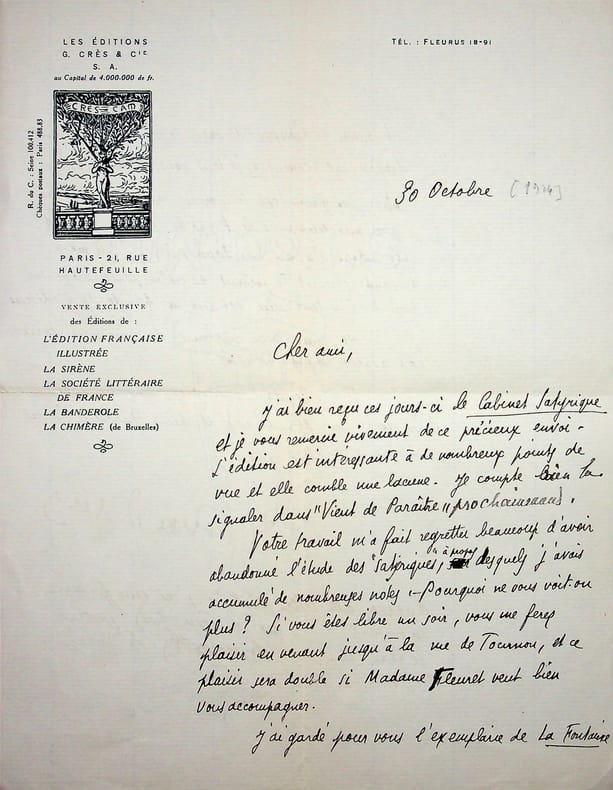 LES ÉDITIONS
G. CRÈS & Cie
S. A.
au Capital de 4.000.000 de fr.
R. du C. : Seine 100,412
Chèques postaux : Paris 488.83
CRES CAM
PARIS - 21, RUE
HAUTEFEUILLE
VENTE EXCLUSIVE
des Éditions de :
L'ÉDITION FRANÇAISE
ILLUSTRÉE
LA SIRÈNE
LA SOCIÉTÉ LITTÉRAIRE
DE FRANCE
LA BANDEROLE
LA CHIMÈRE (de Bruxelles)
TÉL. : FLEURUS 18-91
30 Octobre [1924]
Cher ami,
J'ai bien reçu ces jours-ci le Cabinet Satyrique
et je vous remercie vivement de ce précieux envoi -
L'édition est intéressante à de nombreux points de
vue et elle comble une lacune. Je compte bien la
signaler dans "Vient de Paraître" prochainement.
Votre travail m'a fait regretter beaucoup d'avoir
abandonné l'étude des "satyriques", à propos desquels j'avais
accumulé de nombreuses notes. - Pourquoi ne vous voit-on
plus ? Si vous êtes libre un soir, vous me ferez
plaisir en venant jusqu'à la rue de Tournon, et ce
plaisir sera double si Madame Fleuret veut bien
vous accompagner.
J'ai gardé pour vous l'exemplaire de La Fontaine